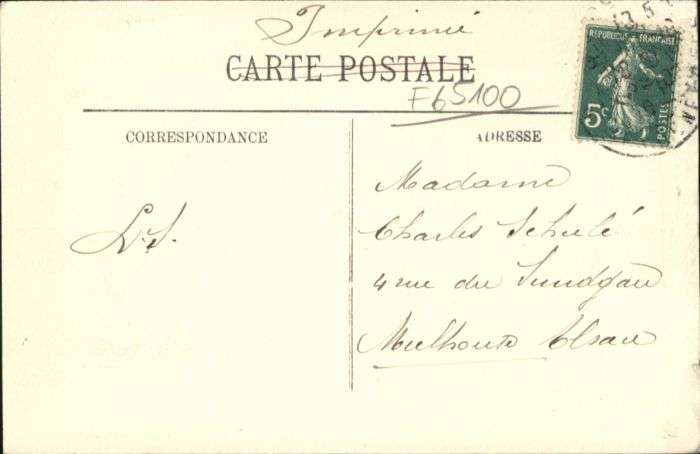 Imprimé
CARTE POSTALE
F65100
RÉPUBLIQUE FRANÇAISE
5c
POSTES
CORRESPONDANCE
ADRESSE
L.S.
Madame
Charles Schulé
4 rue du Sundgau
Mulhouse Alsace